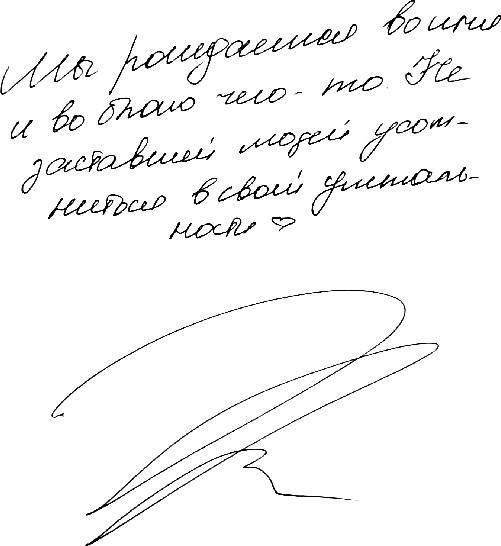 Мы рождаемся во имя
и во благо чего-то. Не
заставляй людей усом-
ниться в своей уникаль-
ности ♡